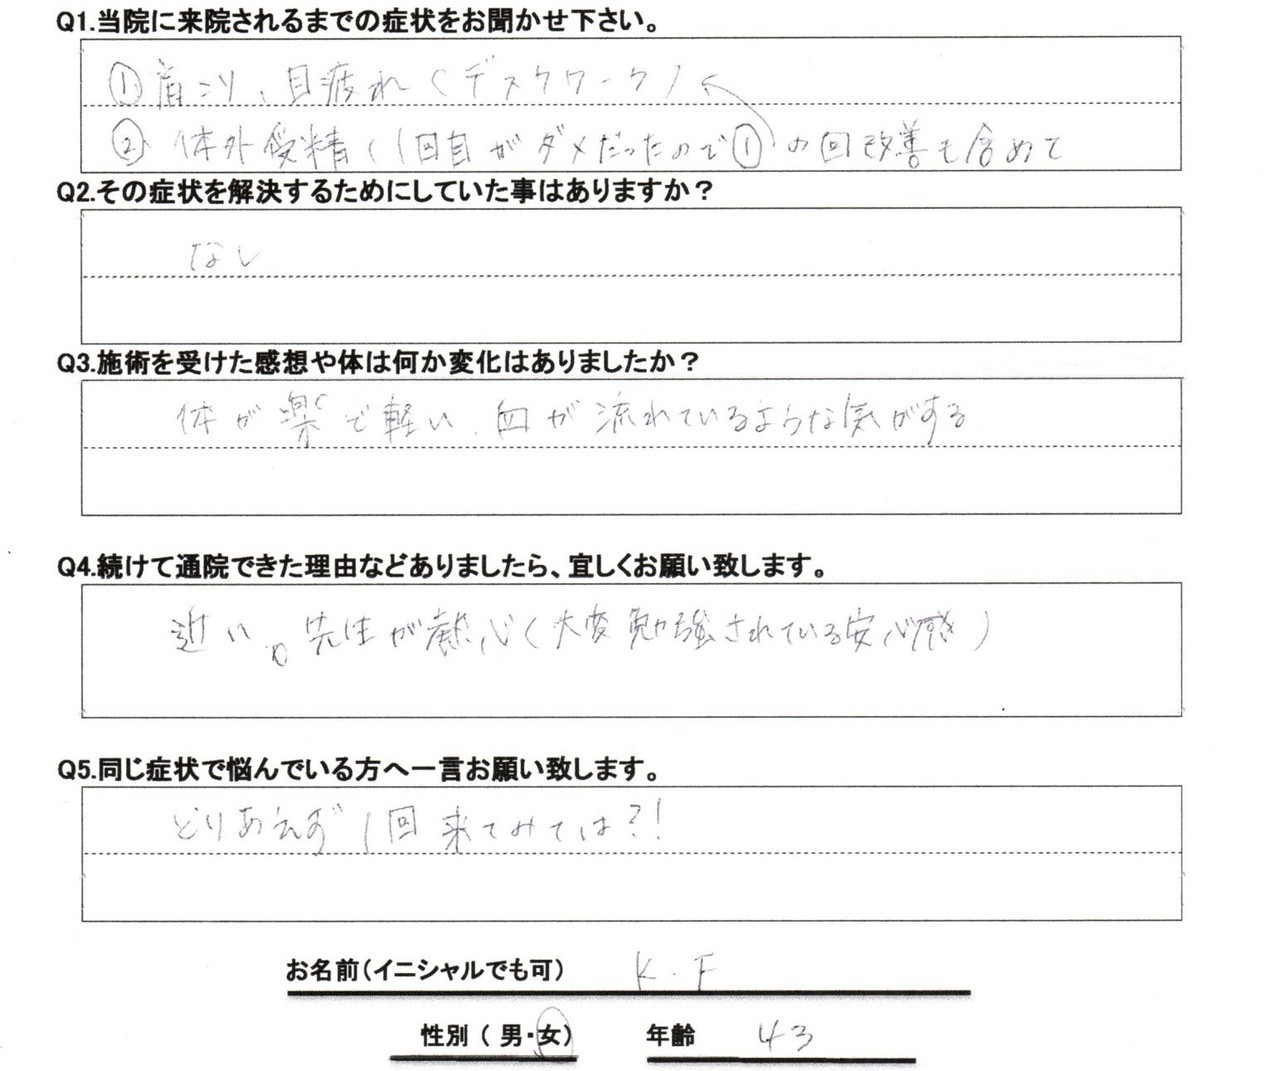 Q1.当院に来院されるまでの症状をお聞かせ下さい。
①肩こり、目疲れ(デスクワーク)
② 体外受精(1回目がダメだったので①の回改善も含めて
Q2.その症状を解決するためにしていた事はありますか？
なし
Q3.施術を受けた感想や体は何か変化はありましたか？
体が楽で軽い、血が流れているような気がする
Q4.続けて通院できた理由などありましたら、宜しくお願い致します。
近い。先生が熱心(大変勉強されている安心感)
Q5.同じ症状で悩んでいる方へ一言お願い致します。
とりあえず1回来てみては?!
お名前(イニシャルでも可) K.F
性別(男・女) 年齢 43